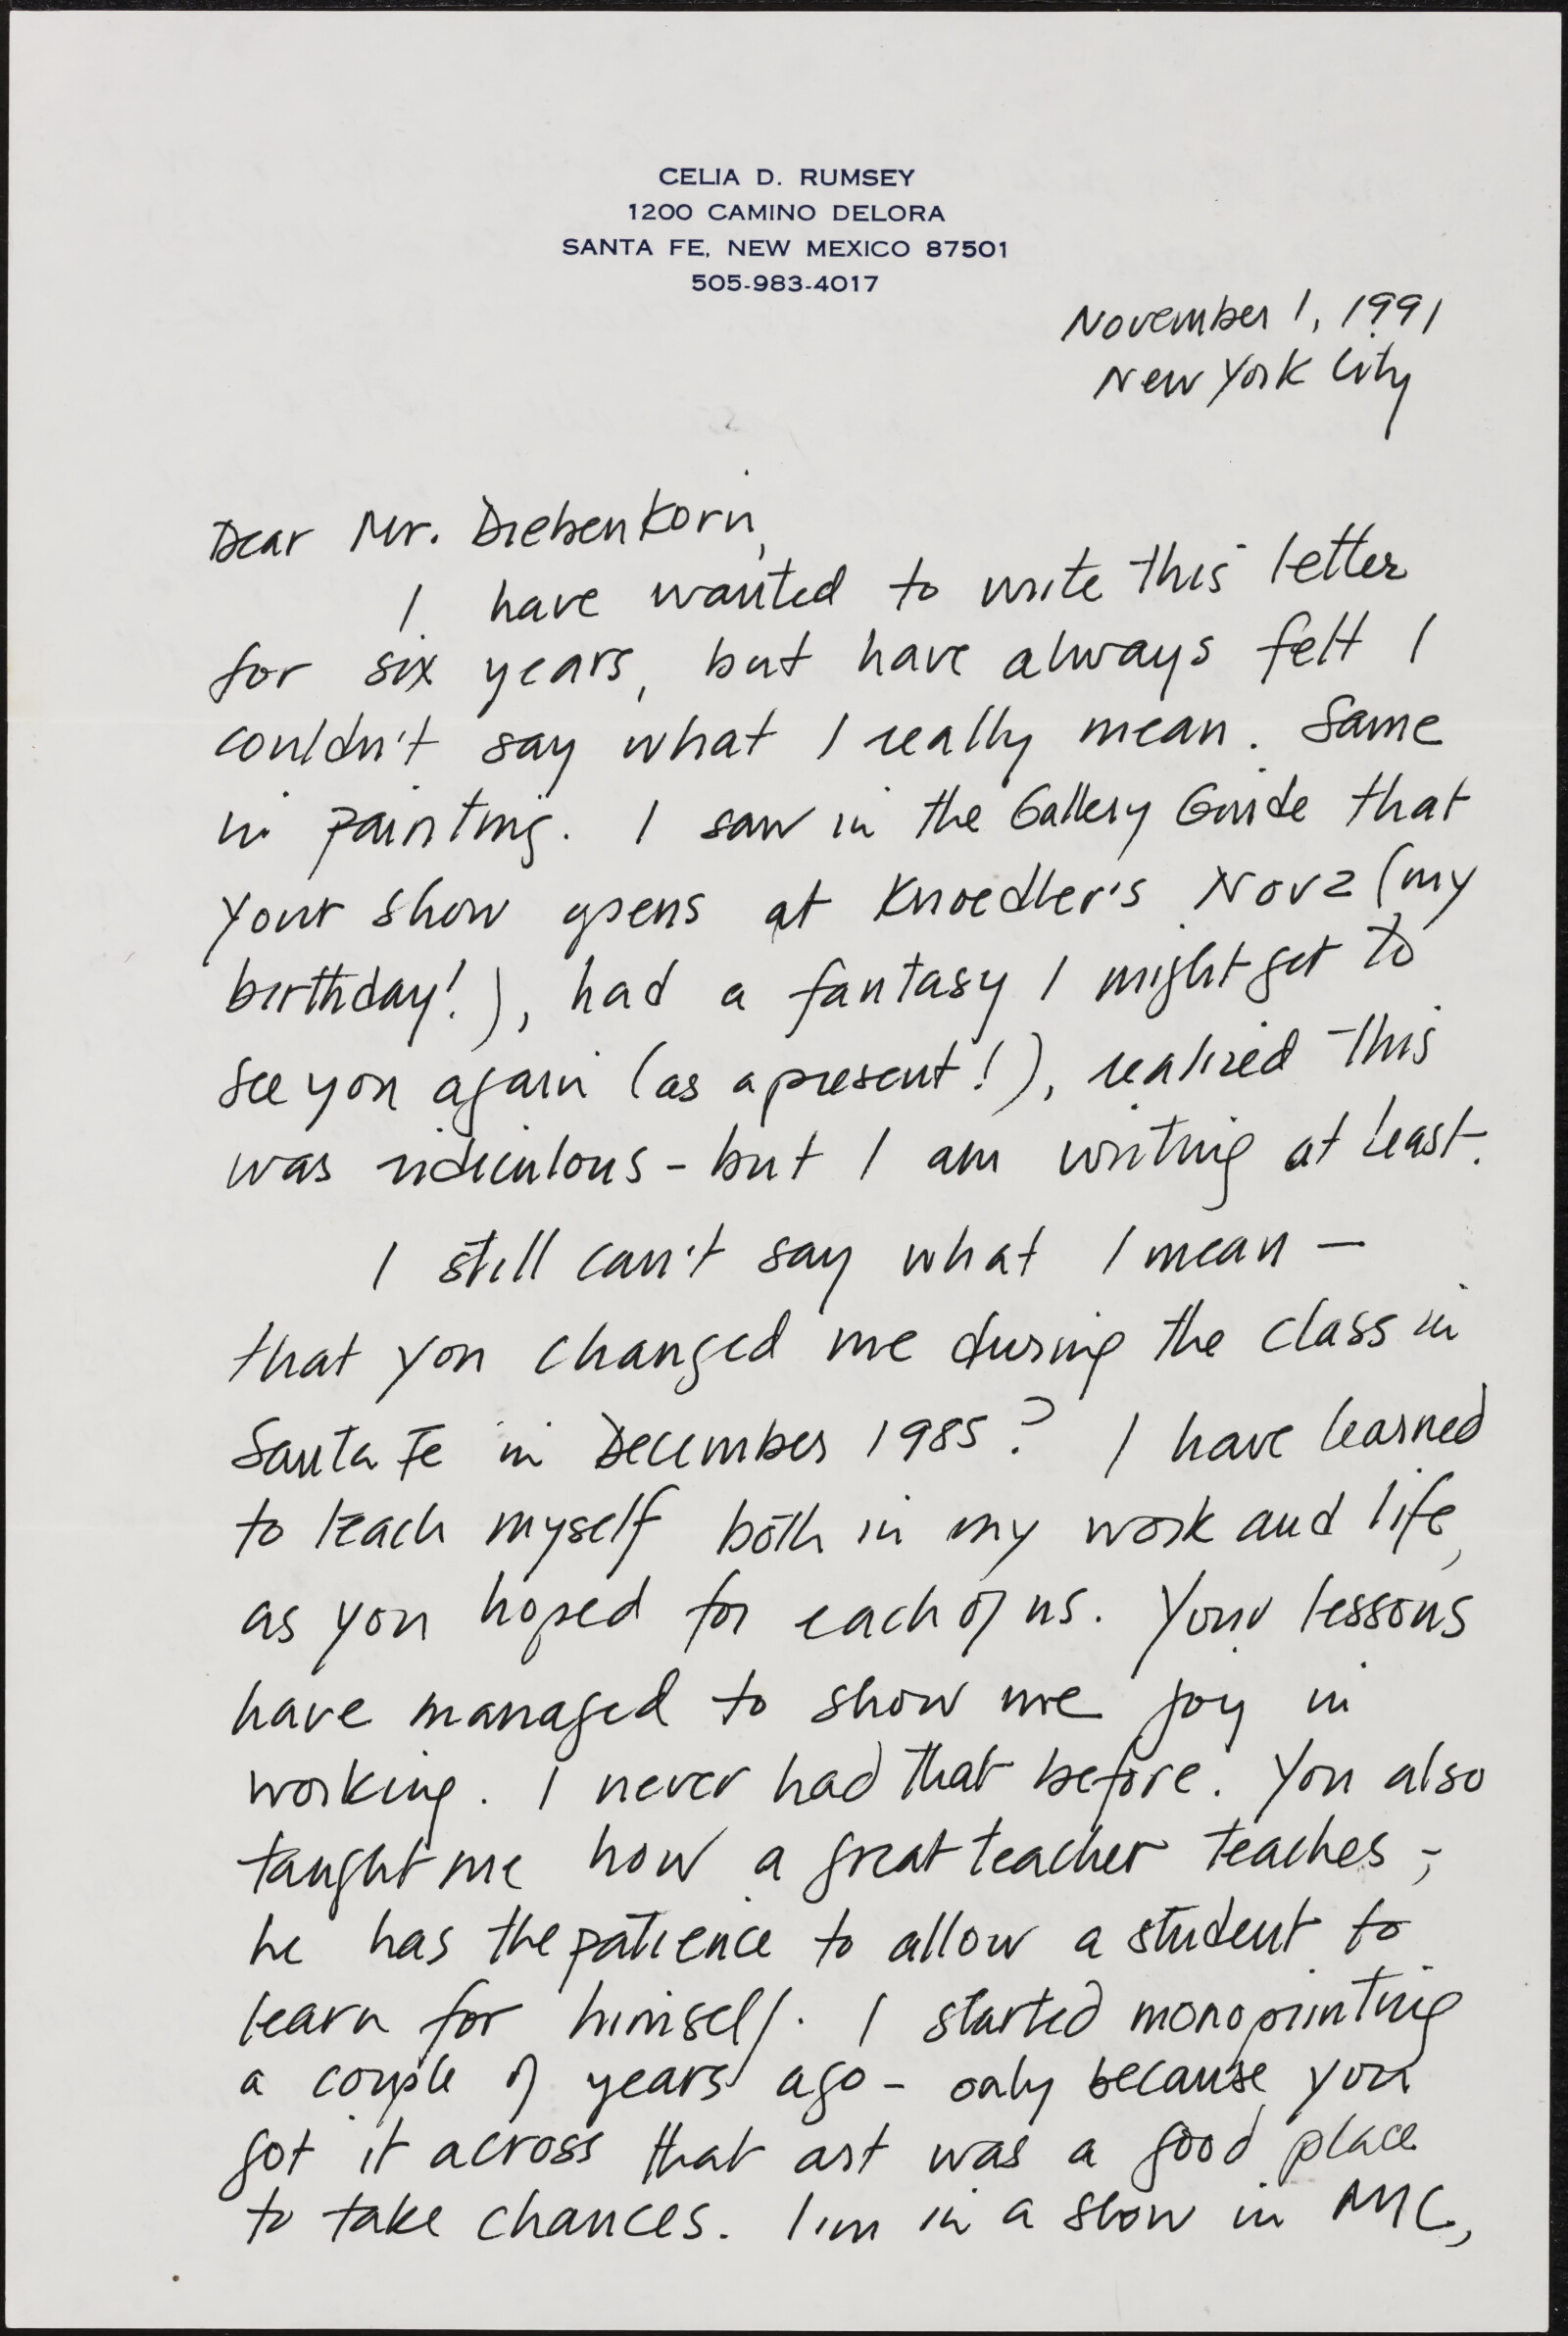 CELIA D. RUMSEY
1200 CAMINO DELORA
SANTA FE, NEW MEXICO 87501
505-983-4017
November 1, 1991
New York City
Dear Mr. Diebenkorn,
I have wanted to write this letter
for six years, but have always felt I
couldn't say what I really mean. Same
in painting. I saw in the Gallery Guide that
your show opens at Knoedler's Nov 2 (my
birthday!), had a fantasy I might get to
see you again (as a present!), realized this
was ridiculous - but I am writing at least.
I still can't say what I mean —
that you changed me during the class in
Santa Fe in December 1985? I have learned
to teach myself both in my work and life,
as you hoped for each of us. Your lessons
have managed to show me joy in
working. I never had that before. You also
taught me how a great teacher teaches -
he has the patience to allow a student to
learn for himself. I started monoprinting
a couple of years ago - only because you
got it across that art was a good place
to take chances. I'm in a show in NYC,